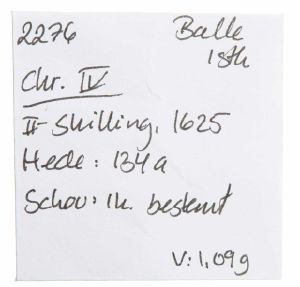 2276 Balle
18th
Chr. IV
II-Skilling, 1625
Hede: 134a
Schou: Ik. bestemt
V: 1,09g